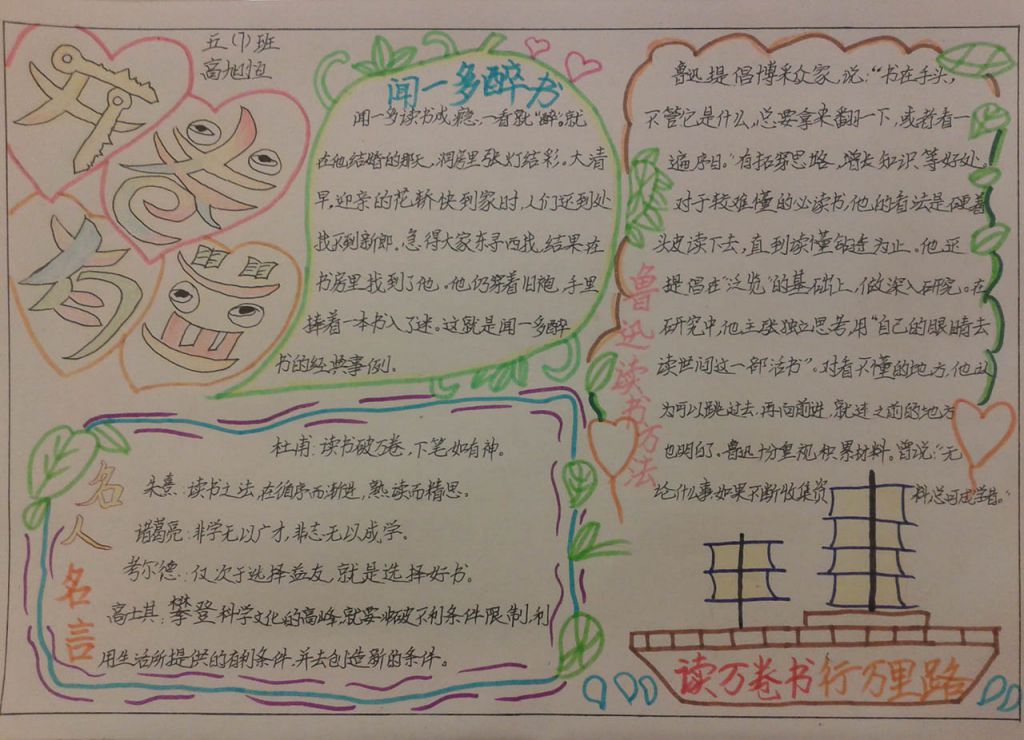 开卷有益
五(7)班
高旭恒
闻一多醉书
闻一多读书成瘾,一看就"醉",就
在他结婚的那天,洞房里张灯结彩。大清
早,迎亲的花轿快到家时,人们还到处
找不到新郎。急得大家东寻西找,结果在
书房里找到了他。他仍穿着旧袍,手里
捧着一本书入了迷。这就是闻一多醉
书的经典事例。
鲁迅读书方法
鲁迅提倡博采众家,说:"书在手头,
不管它是什么,总要拿来翻一下,或者看一
遍序目。"有拓穿思路,增长知识等好处。
对于较难懂的必读书,他的看法是硬着
头皮读下去,直到读懂钻进为止。他还
提倡在"泛览"的基础上,做深入研究。在
研究中,他主张独立思考,用"自己的眼睛去
读世间这一部活书"。对看不懂的地方,他认
为可以跳过去,再向前进,就连之前的地方
也明白了。鲁迅十分重视积累材料。曾说:"无
论什么事如果不断收集资料总可成学者。"
名人名言
杜甫:读书破万卷,下笔如有神。
朱熹:读书之法,在循序而渐进,熟读而精思。
诸葛亮:非学无以广才,非志无以成学。
考尔德:仅次于选择益友,就是选择好书。
高士其:攀登科学文化的高峰,就要冲破不利条件限制,利
用生活所提供的有利条件,并去创造新的条件。
读万卷书行万里路